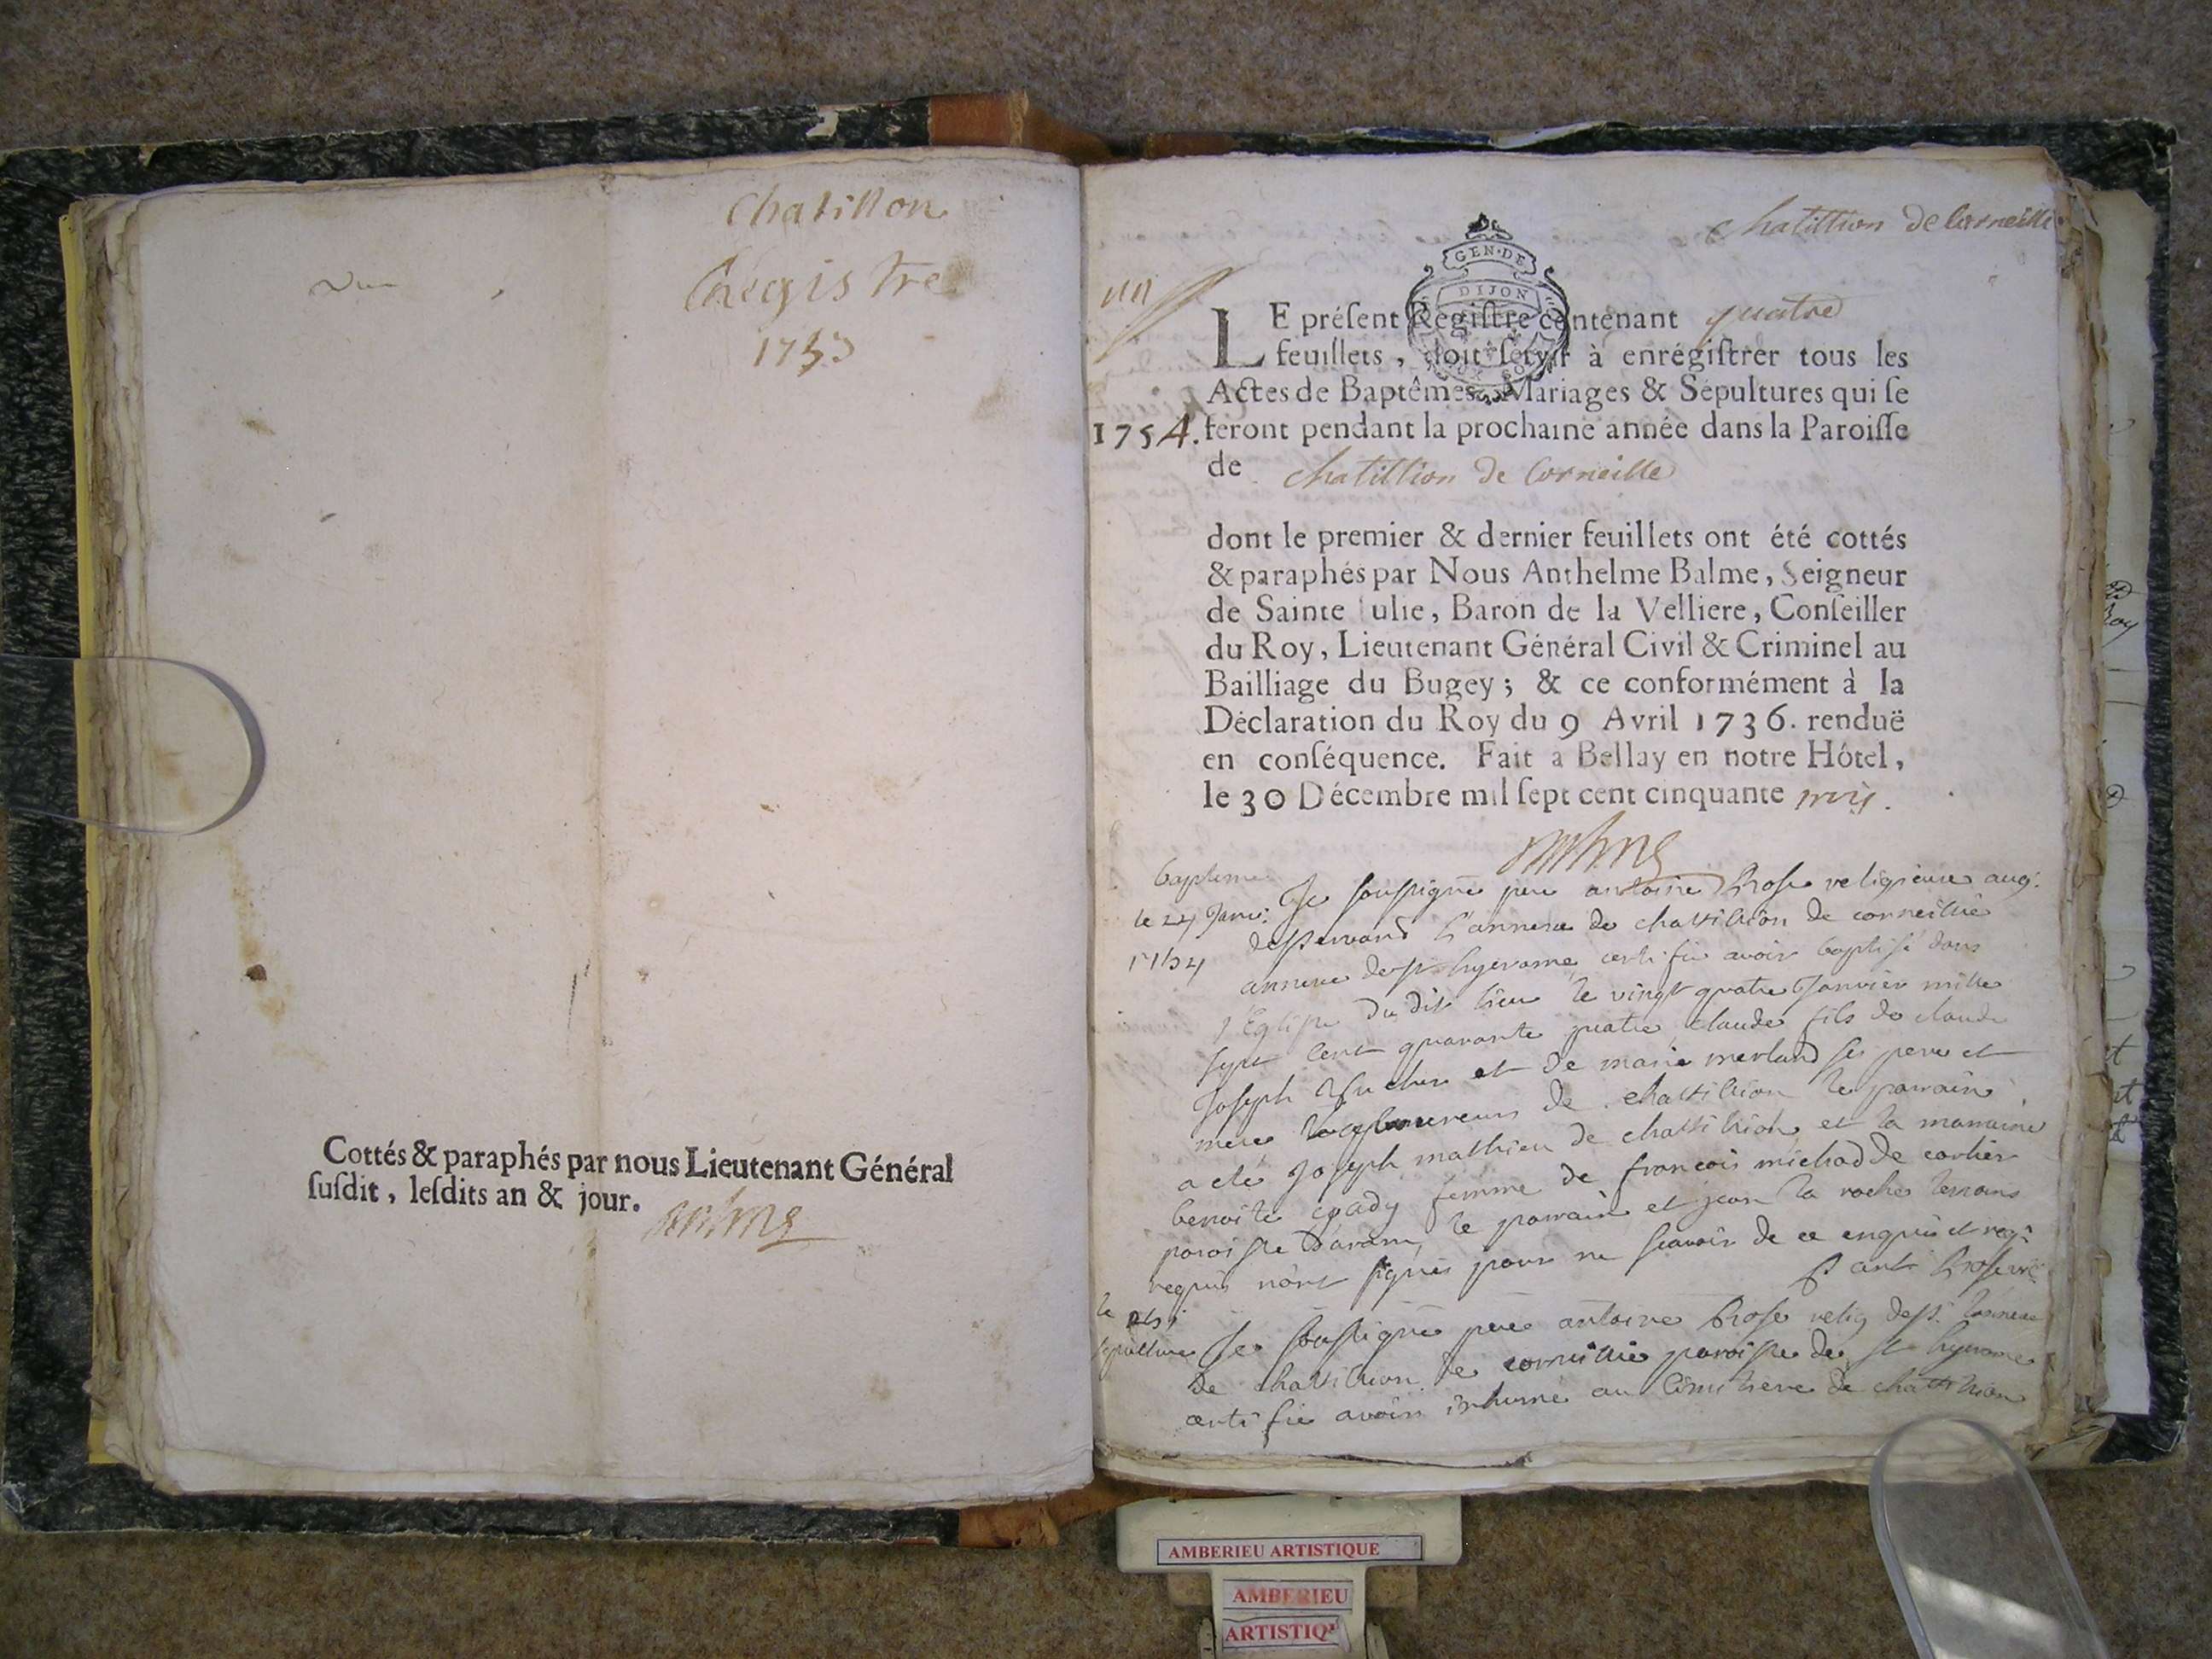 Chatillon
Registre
1753
Cottés & paraphés par nous Lieutenant Général
susdit, lesdits an & jour.
chatillion de Corneille
GEN·DE
DIJON
LE présent Registre contenant quatre
feuillets, doit servir à enrégistrer tous les
Actes de Baptêmes, Mariages & Sépultures qui se
1754. feront pendant la prochaine année dans la Paroisse
de chatillion de Corneille
dont le premier & dernier feuillets ont été cottés
& paraphés par Nous Anthelme Balme, Seigneur
de Sainte Julie, Baron de la Velliere, Conseiller
du Roy, Lieutenant Général Civil & Criminel au
Bailliage du Bugey; & ce conformément à la
Déclaration du Roy du 9 Avril 1736. renduë
en conséquence. Fait a Bellay en notre Hôtel,
le 30 Décembre mil sept cent cinquante trois.
bapteme
le 24 Janv:
1754
Je soussigné pere antoine religieux aug:
desservant l'annexe de chattillion de corneillie
annexe de st hyerome certifie avoir baptisé dans
l'Eglise du dit lieu le vingt quatre Janvier mille
sept cent quarante quatre claude fils de claude
Joseph et de marie merland ses pere et
mere de chattillion le parrain
a eté Joseph mathieu de chattillion et la marraine
benoite femme de francois michod de corlier
paroisse d'aranc, le parrain et jean la roche temoins
requis n'ont signés pour ne scavoir de ce enquis et req:
le
sepulture
Je soussigné pere antoine relig dess: l'annexe
de chattillion de corneillie paroisse de st hyerome
certifie avoir inhumé au cimetiere de chattillion
AMBERIEU ARTISTIQUE
AMBERIEU
ARTISTIQ